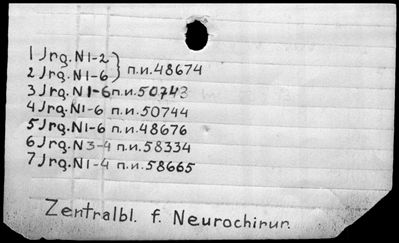 1 Jrg. N 1-2 } п.и. 48674
2 Jrg. N 1-6
3 Jrg. N 1-6 п.и. 50743
4 Jrg. N 1-6 п.и. 50744
5 Jrg. N 1-6 п.и. 48676
6 Jrg. N 3-4 п.и. 58334
7 Jrg. N 1-4 п.и. 58665
Zentralbl. f. Neurochirur.